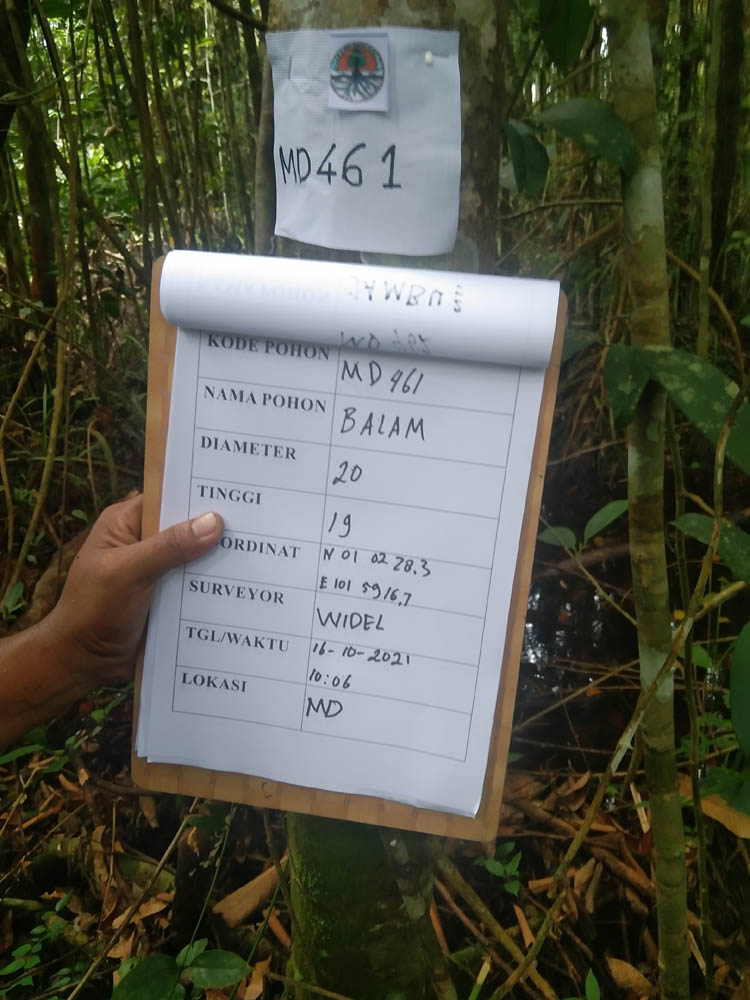 MD461
JAMBU
KODE POHON MD461
NAMA POHON BALAM
DIAMETER 20
TINGGI 19
ORDINAT N 01 02 28,3
E 101 59 16,7
SURVEYOR WIDEL
TGL/WAKTU 16-10-2021
10:06
LOKASI MD